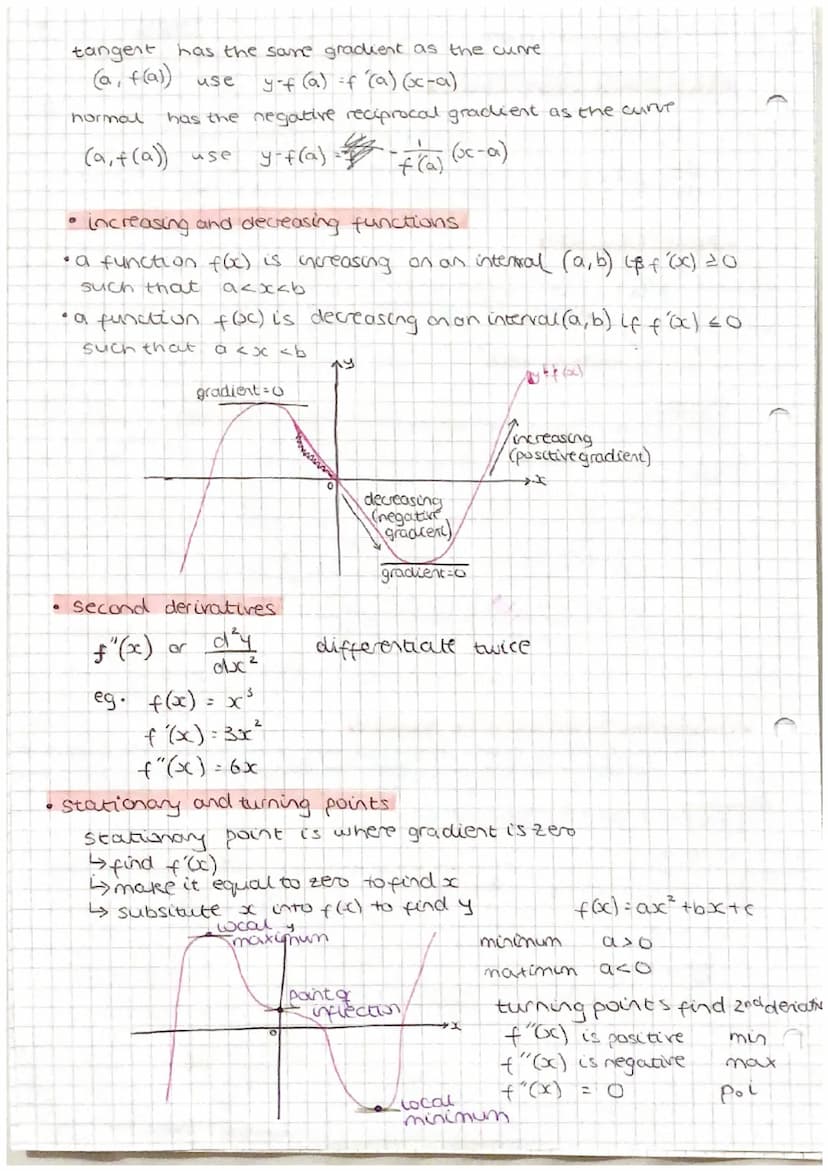 tangent has the same gradient as the curve
(a, f(a)) use y-f(a) = f'(a)(x-a)
normal has the negative reciprocal gradient as the curve
(a, f(a)) use y-f(a) = -1/f'(a) (x-a)
• increasing and decreasing functions
• a function f(x) is increasing on an interval (a,b) if f'(x) ≥ 0
such that a<x<b
• a function f(x) is decreasing on an interval (a,b) if f'(x) ≤ 0
such that a<x<b
y
gradient=0
y=f(x)
increasing
(positive gradient)
x
0
decreasing
(negative
gradient)
gradient=0
• second derivatives
f"(x) or d²y/dx² differentiate twice
eg. f(x) = x³
f'(x) = 3x²
f"(x) = 6x
• stationary and turning points
stationary point is where gradient is zero
↳ find f'(x)
↳ make it equal to zero to find x
↳ subsitute x into f(x) to find y
f(x) = ax² + bx + c
minimum a>0
maximum a<0
turning points find 2nd derivativ
f"(x) is positive min
f"(x) is negative max
f"(x) = 0 poi
local
maximum
y
point of
inflection
x
0
local
minimum